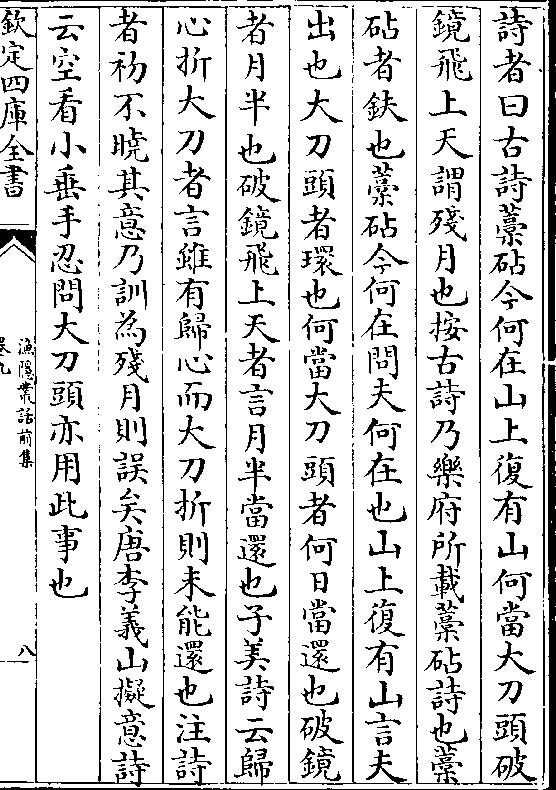 詩者曰古詩藁砧今何在山上復有山何當大刀頭破
鏡飛上天謂殘月也按古詩乃樂府所載藁砧詩也藁
砧者鈇也藁砧今何在問夫何在也山上復有山言夫
出也大刀頭者環也何當大刀頭者何日當還也破鏡
者月半也破鏡飛上天者言月半當還也子美詩云歸
心折大刀者言雖有歸心而大刀折則未能還也注詩
者初不曉其意乃訓為殘月則誤矣唐李義山擬意詩
云空看小垂手忍問大刀頭亦用此事也
欽定四庫全書
漁隱叢話前集
卷九
八